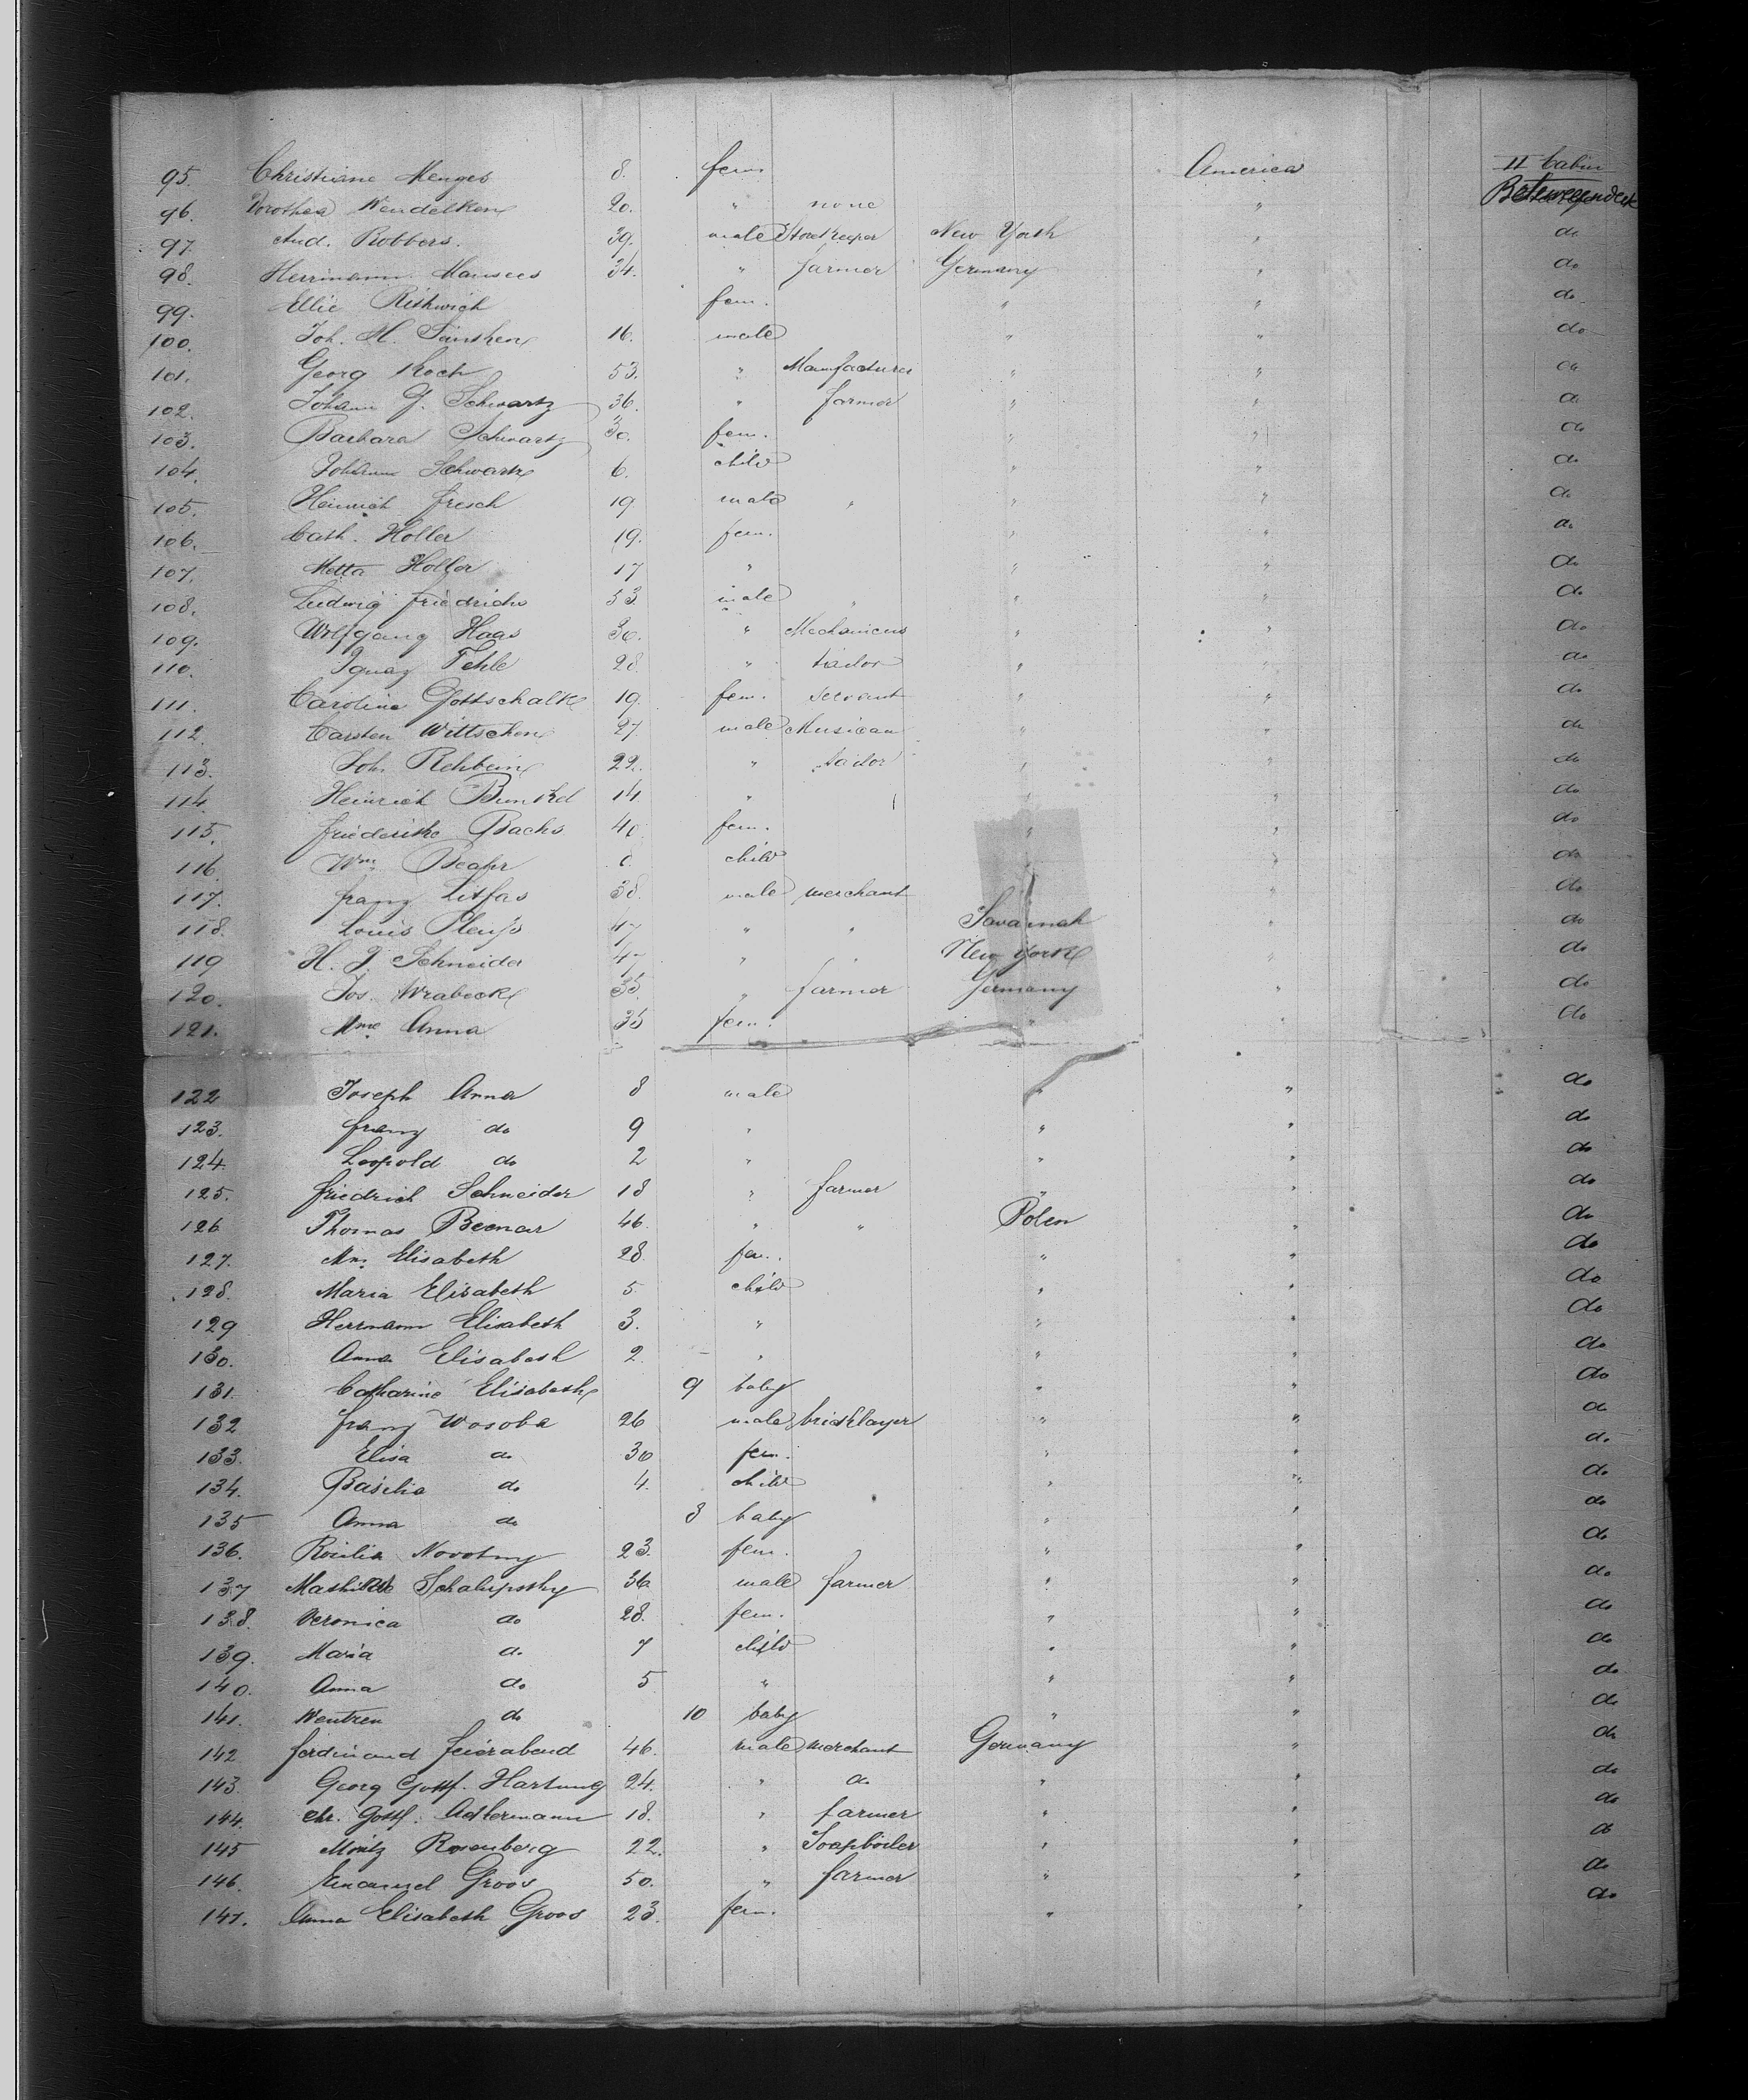 95. Christiane Menges 8. fem. America II Cabin
96. Dorothea Wendelken 20. " none " Betweendeck
97. Aud. Robbers. 39. male Storekeeper New York " do
98. Herrmann Mansees 34. " farmer Germany " do
99. Ellie fem. " " do
100. Joh. H. 16. male " " do
101. Georg Koch 53. " Manufacturer " " do
102. Johann G. Schwartz 36. " farmer " " do
103. Barbara Schwartz 30. fem. " " do
104. Johann Schwartz 6. child " " do
105. Heinrich Fresch 19 male " " " do
106. Cath. Holler 19. fem. " " do
107. Metta Holler 17 " " " do
108. Ludwig Friedrichs 53 male " " " do
109. Wolfgang Haas 30. " Mechanicus " " do
110. Ignaz Fehle 28 " tailor " " do
111. Caroline Gottschalk 19. fem. servant " " do
112. Carsten Wittschen 27. male Musican " " do
113. Joh. Rehbein 22. " tailor " " do
114. Heinrich 14 " " do
115. Friederike Bachs 40 fem. " " do
116. Wm. child " do
117. Franz Litfas 38. male merchant " do
118. Louis 47 " " Savannah " do
119 H. J. Schneider 47 " " New York " do
120. Jos. Wrabeck 35. " farmer Germany " do
121. Mme Anna 35 fem. " " do
122 Joseph Anna 8 male " " do
123. Franz do 9 " " " do
124. Leopold do 2 " " " do
125. Friedrich Schneider 18 " farmer " " do
126 Thomas 46. " " Polen " do
127. Mm. Elisabeth 28. fem. " " do
128. Maria Elisabeth 5. child " " do
129 Herrmann Elisabeth 3. " " " do
130. Anna Elisabeth 2. " " " do
131. Catharine Elisabeth 9 baby " " do
132 Franz Wosoba 26 male bricklayer " " do
133. Elisa do 30 fem. " " do
134. Basilia do 4. child " " do
135 Anna do 8 baby " " do
136. Rosilia Novotny 23. fem. " " do
137 Schalupsky 36 male farmer " " do
138. Veronica do 28. fem. " " do
139. Maria do 7 child " " do
140. Anna do 5 " " " do
141. do 10 baby " " do
142 Ferdinand Feierabend 46. male merchant Germany " do
143. Georg Gottf. Hartung 24. " do " " do
144. Chr. Gottf. Adlermann 18. " farmer " " do
145 Moritz Rosenberg 22. " Soapboiler " " do
146. Emanuel Groos 50. " farmer " " do
147. Anna Elisabeth Groos 23. fem. " " do